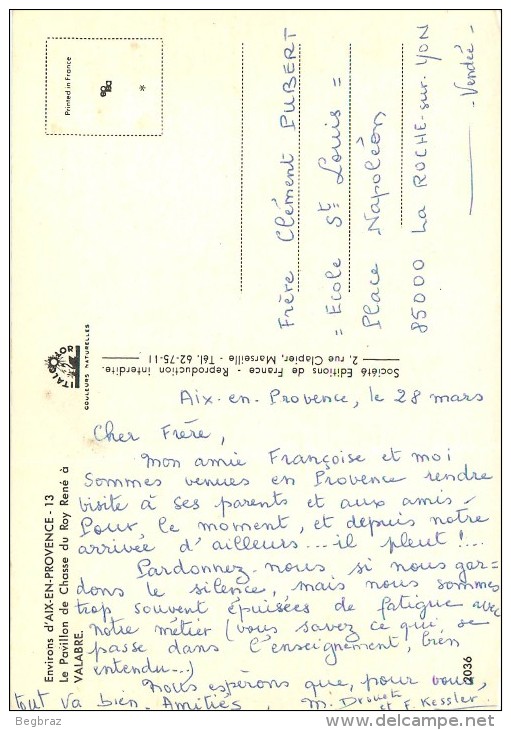 Printed in France
Frère Clément PUBERT
= Ecole St Louis =
Place Napoléon
85000 La ROCHE-sur-YON
- Vendée -
ITALCOLOR
COULEURS NATURELLES
Société Editions de France - Reproduction interdite.
2, rue Clapier, Marseille - Tél. 62-75-11
Environs d'AIX-EN-PROVENCE - 13
Le Pavillon de Chasse du Roy René à
VALABRE.
2036
Aix-en-Provence, le 28 mars
Cher Frère,
Mon amie Françoise et moi
sommes venues en Provence rendre
visite à ses parents et aux amis.
Pour le moment, et depuis notre
arrivée d'ailleurs... il pleut !...
Pardonnez-nous si nous gar-
dons le silence, mais nous sommes
trop souvent épuisées de fatigue avec
notre métier (vous savez ce qui se
passe dans l'enseignement, bien
entendu...)
Nous espérons que, pour vous,
tout va bien. Amitiés,
M. Drouet
et F. Kessler
Begbraz
delcampe.net